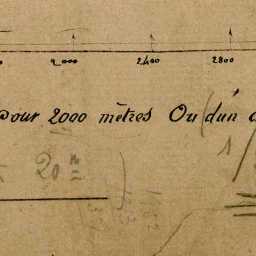 2000 2400 2800
pour 2000 mètres Ou (d'un
1/
20 m